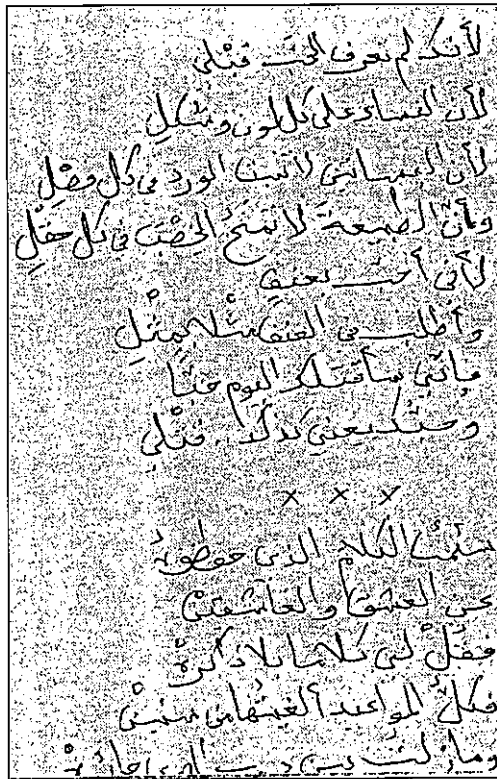 لأنك لم تعرف الحبَّ قبلي
لأن النساء على كل لون وشكلِ
لأن البساتين لا تنبت الورد في كل فصْلِ
وأنَّ الطبيعةَ لا تمنحُ الخِصْبَ في كل حقْلِ
لأني أحب بعنفٍ
وأطلب في العنف مثْلا بمِثْلِ
فإنني سأقتلك اليوم حبًّا
وحبُّك يعني كذلك قتْلي
× × ×
سئمتُ الكلام الذي
عن العشق والعاشقينْ
فقلْ لي كلاما بلا ذاكرهْ
فكلُّ المواعيد ألغيتُها من سنينْ
وما زلتُ